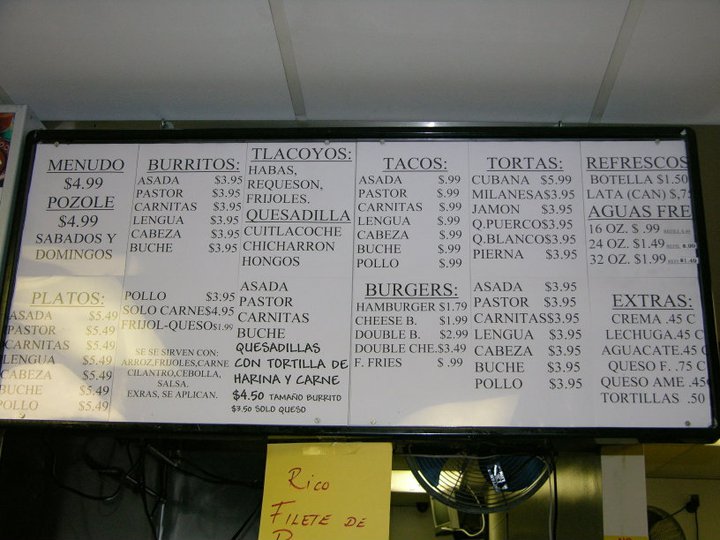 MENUDO
$4.99
POZOLE
$4.99
SABADOS Y
DOMINGOS
BURRITOS:
ASADA $3.95
PASTOR $3.95
CARNITAS $3.95
LENGUA $3.95
CABEZA $3.95
BUCHE $3.95
TLACOYOS:
HABAS,
REQUESON,
FRIJOLES.
QUESADILLA
CUITLACOCHE
CHICHARRON
HONGOS
TACOS:
ASADA $.99
PASTOR $.99
CARNITAS $.99
LENGUA $.99
CABEZA $.99
BUCHE $.99
POLLO $.99
TORTAS:
CUBANA $5.99
MILANESA$3.95
JAMON $3.95
Q.PUERCO$3.95
Q.BLANCO$3.95
PIERNA $3.95
REFRESCOS
BOTELLA $1.50
LATA (CAN) $,75
AGUAS FRE
16 OZ. $ .99
24 OZ. $1.49
32 OZ. $1.99
PLATOS:
ASADA $5.49
PASTOR $5.49
CARNITAS $5.49
LENGUA $5.49
CABEZA $5.49
BUCHE $5.49
POLLO $5.49
POLLO $3.95
SOLO CARNE$4.95
FRIJOL-QUESO$1.99
SE SE SIRVEN CON:
ARROZ,FRIJOLES,CARNE
CILANTRO,CEBOLLA,
SALSA.
EXRAS, SE APLICAN.
ASADA
PASTOR
CARNITAS
BUCHE
QUESADILLAS
CON TORTILLA DE
HARINA Y CARNE
$4.50 TAMAÑO BURRITO
$3.50 SOLO QUESO
BURGERS:
HAMBURGER $1.79
CHEESE B. $1.99
DOUBLE B. $2.99
DOUBLE CHE.$3.49
F. FRIES $ .99
ASADA $3.95
PASTOR $3.95
CARNITAS$3.95
LENGUA $3.95
CABEZA $3.95
BUCHE $3.95
POLLO $3.95
EXTRAS:
CREMA .45 C
LECHUGA.45 C
AGUACATE.45 C
QUESO F. .75 C
QUESO AME .45C
TORTILLAS .50
RICO
FILETE DE